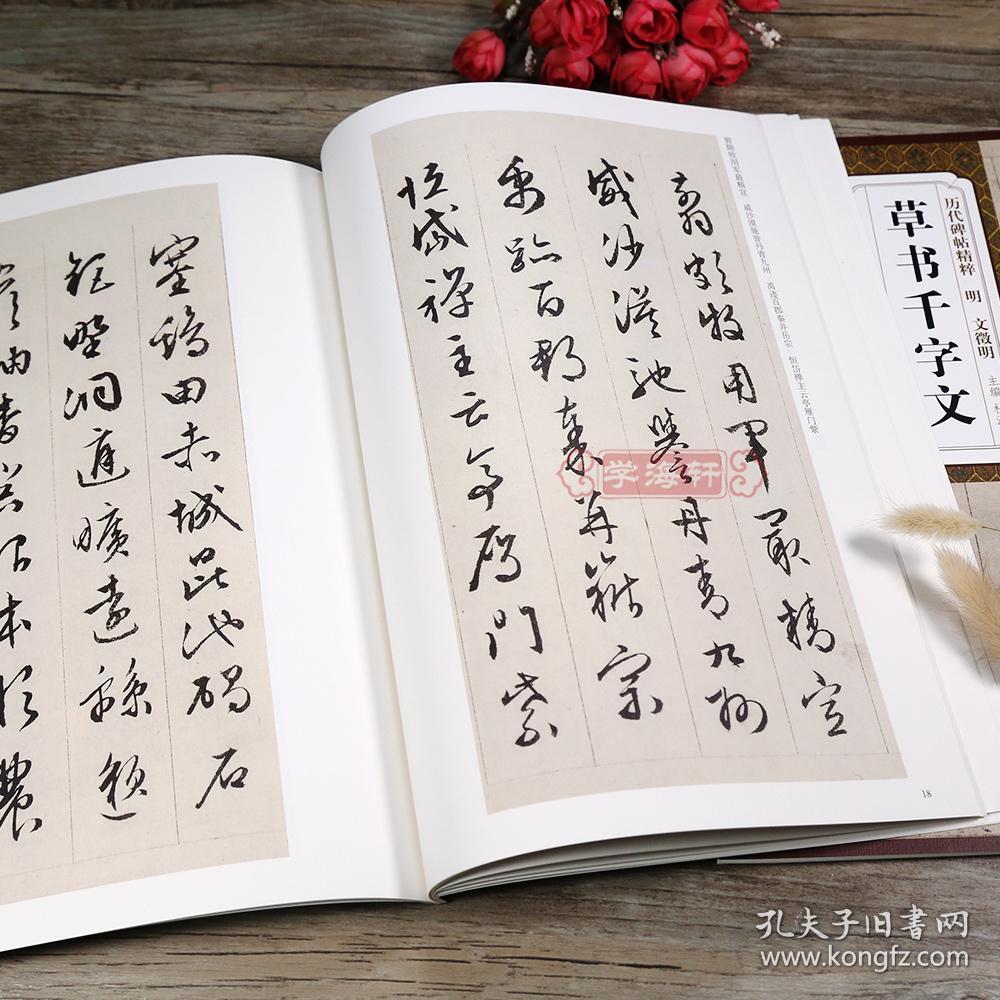 翦頗牧用軍最精宣
威沙漠馳譽丹青九州
禹跡百郡秦并嶽宗
恒岱禪主云亭雁門紫
翦颇牧用军最精宣 威沙漠驰誉丹青九州 禹迹百郡秦并岳宗 恒岱禅主云亭雁门紫
18
塞雞田赤城昆池碣石
鉅野洞庭曠遠緜邈
岫杳冥治本於農
历代碑帖精粹 明 文徵明
草书千字文
主编
学海轩
孔夫子旧书网
www.kongfz.com